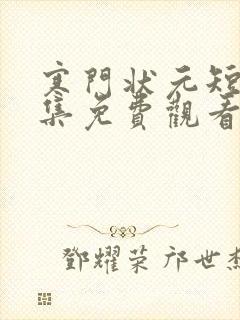 寒門状元短
集免費觀看
鄧耀荣 邝世杰